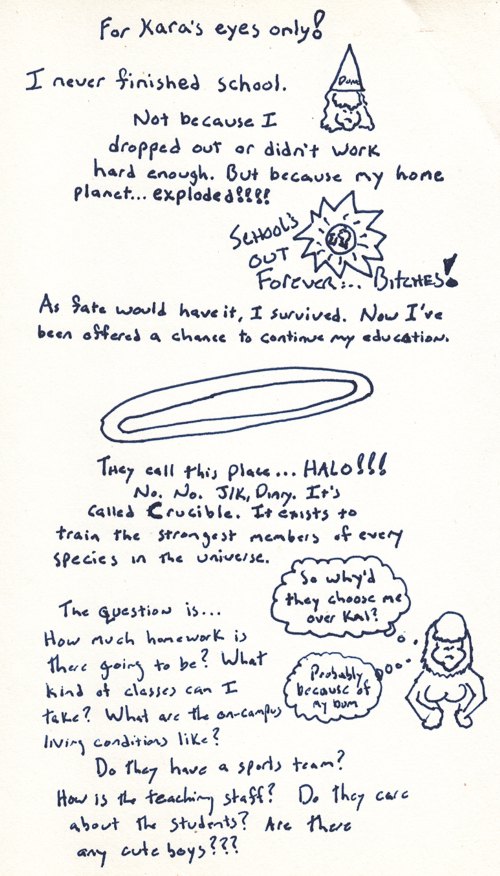 For Kara's eyes only!
I never finished school.
Dunce
Not because I
dropped out or didn't work
hard enough. But because my home
planet... exploded!!!!
School's
out
Forever... Bitches!
As fate would have it, I survived. Now I've
been offered a chance to continue my education.
They call this place... HALO!!!
No. No. J/K, Diary. It's
called Crucible. It exists to
train the strongest members of every
species in the universe.
So why'd
they choose me
over Kal?
The question is...
How much homework is
there going to be? What
kind of classes can I
take? What are the on-campus
living conditions like?
Probably
because of
my bum
Do they have a sports team?
How is the teaching staff? Do they care
about the students? Are there
any cute boys???